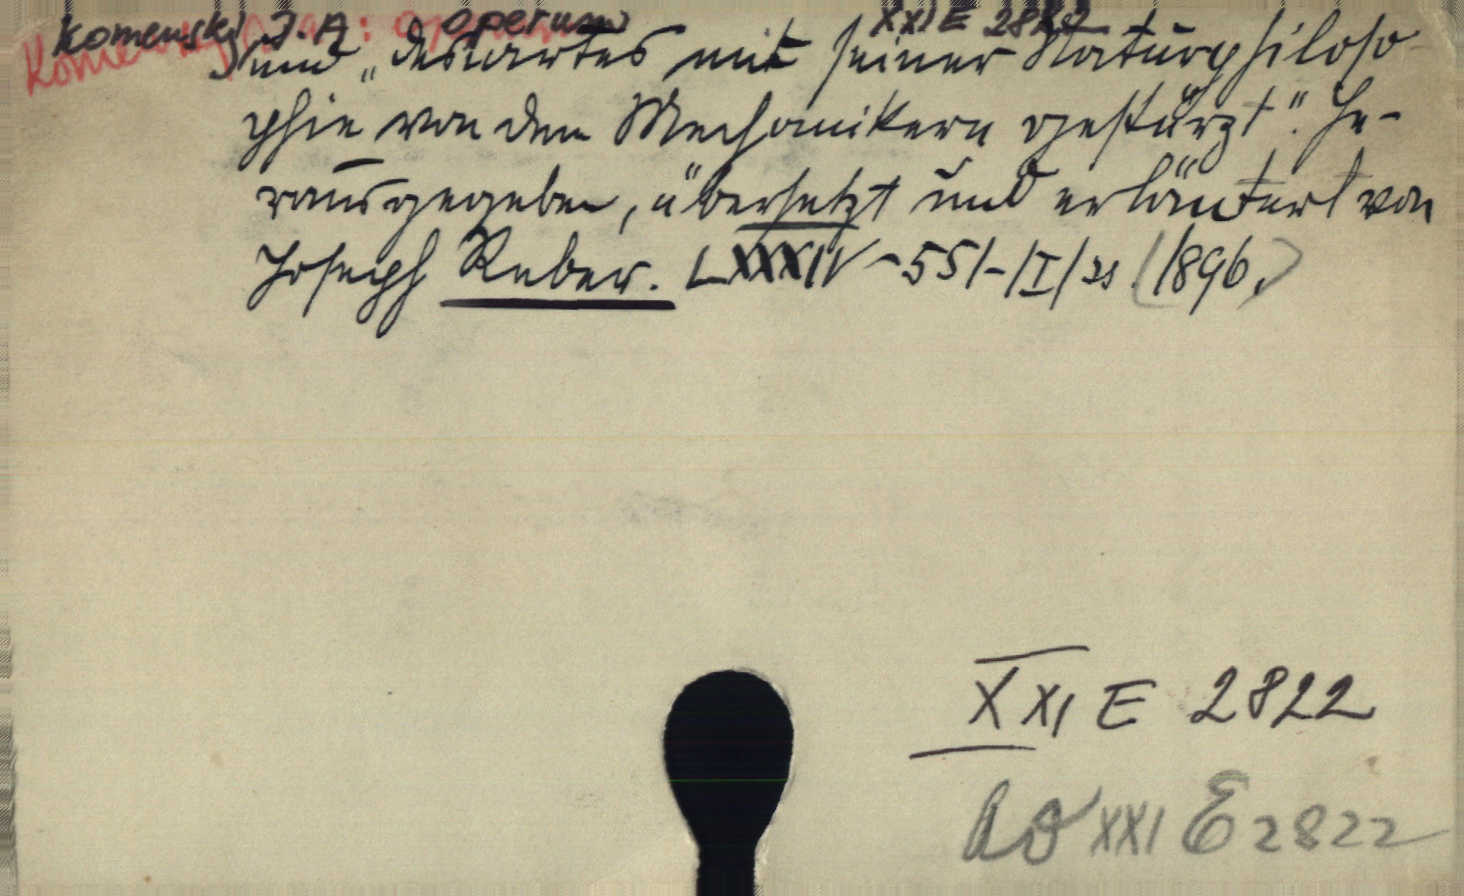 Komenský J. A. operum XXI E 2822
und „Descartes mit seiner Naturphiloso-
phie von den Mechanikern gestürzt". He-
rausgegeben, übersetzt und erläutert von
Joseph Reber. LXXXIV - 551 - /I/ ss (1896.)
XXI E 2822
XXI E 2822